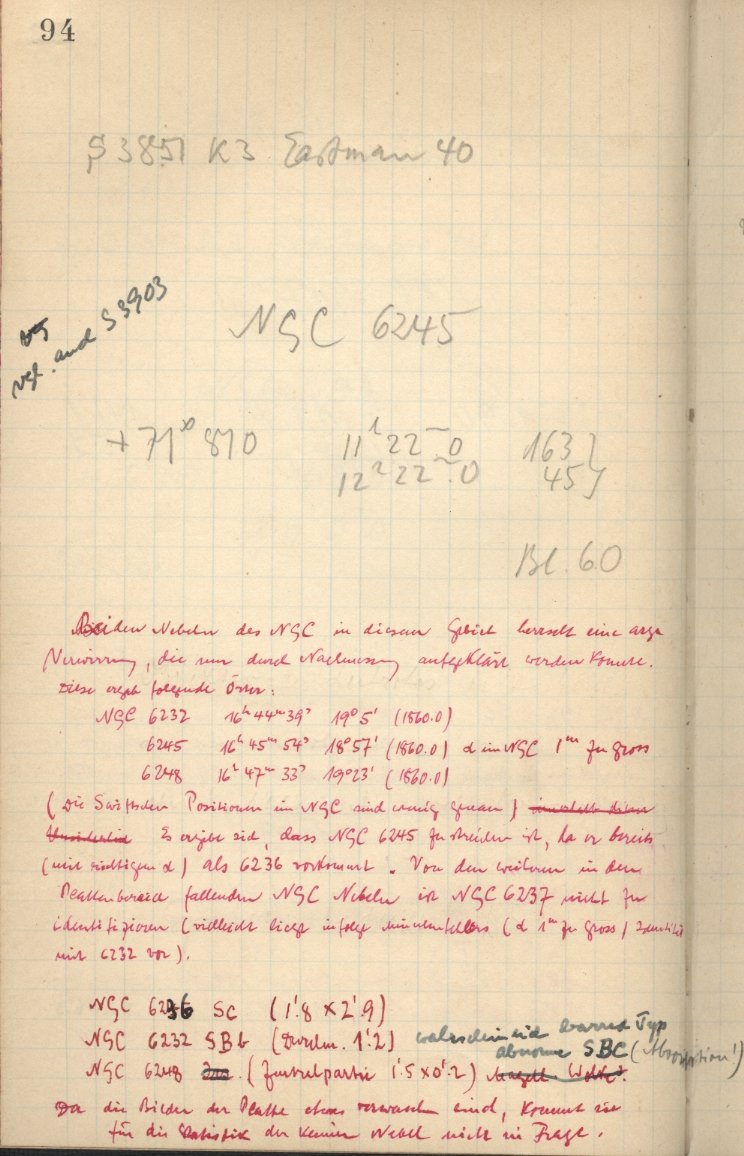 94
S 3851 K3 Eastman 40
vgl. auch S 3903
NGC 6245
+ 71° 810 11ʰ 22ᵐ.0 163}
12ʰ 22ᵐ.0 45}
Bl. 60
Bei den Nebeln des NGC in diesem Gebiet herrscht eine arge
Verwirrung, die nur durch Nachmessung aufgeklärt werden konnte.
Diese ergab folgende Örter:
NGC 6232 16ʰ 44ᵐ 39ˢ 19° 5' (1860.0)
6245 16ʰ 45ᵐ 54ˢ 18° 57' (1860.0) α im NGC 1ᵐ zu gross
6248 16ʰ 47ᵐ 33ˢ 19° 23' (1860.0)
(Die Swiftschen Positionen im NGC sind wenig genau)
Es ergibt sich, dass NGC 6245 zu streichen ist, da er bereits
(mit richtigem α) als 6236 vorkommt. Von den weiteren in den
Plattenbereich fallenden NGC Nebeln ist NGC 6237 nicht zu
identifizieren (vielleicht liegt infolge Minutenfehlers (α 1ᵐ zu gross) Identität
mit 6232 vor).
NGC 6236 SC (1'.8 × 2'.9)
NGC 6232 SBb (Durchm. 1'.2) wahrscheinlich barred Typ
abnorme SBC (Absorption!)
NGC 6248 (Zentralpartie 1'.5 × 0'.2) Magell. Wolke?
Da die Bilder der Platte etwas verwaschen sind, kommt sie
für die Statistik der kleinen Nebel nicht in Frage.